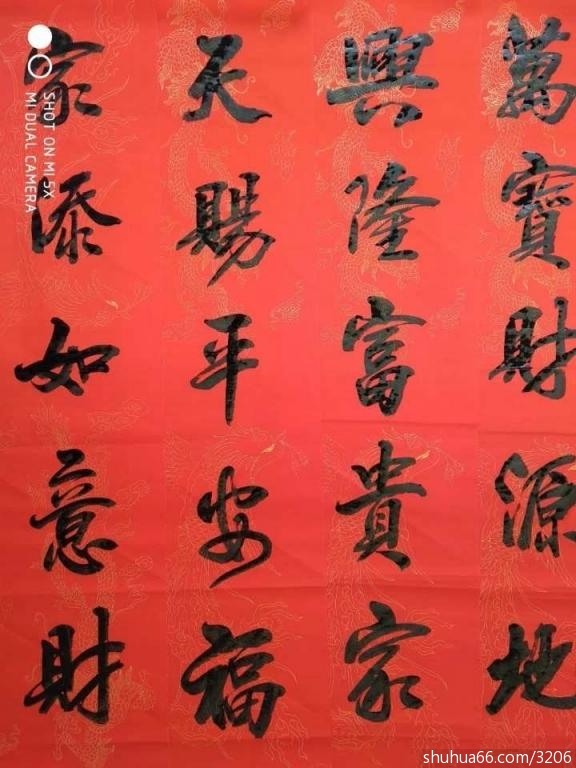 萬寶財源地
興隆富貴家
天賜平安福
家添如意財
SHOT ON MI 5X
MI DUAL CAMERA
shuhua66.com/3206